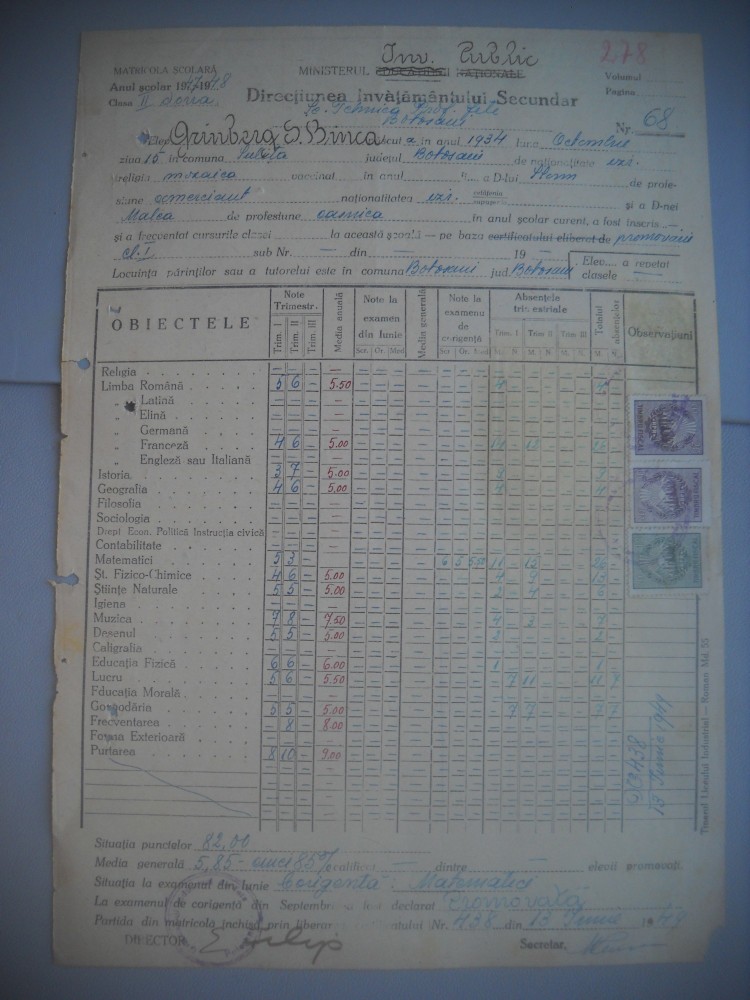 Inv. Public
278
MATRICOLA ȘCOLARĂ
MINISTERUL EDUCAȚIEI NAȚIONALE
Volumul
Anul școlar 1947/1948
Pagina
Clasa II
Direcțiunea Învățământului Secundar
Sc. Tehnica Prof. Fete
Botosani
Nr. 68
Elev Grinberg S. Binca născut ă în anul 1934 luna Octombrie
ziua 10 în comuna județul Botosani de naționalitate izr.
religia mozaica în anul a D-lui de profe-
siune comerciant naționalitatea izr. și a D-nei
Malca de profesiune casnica în anul școlar curent, a fost înscris
și a frecventat cursurile clasei la această școală — pe baza certificatului eliberat de promovarii
cl. I sub Nr. — din — 19 Elev.... a repetat
Locuința părinților sau a tutorelui este în comuna Botosani jud. Botosani clasele —
OBIECTELE
Note Trimestr.
Trim. I Trim. II Trim III
Media anuală
Note la examen din Iunie
Scr. Or. Med
Media generală
Note la examenul de corigență
Scr Or. Med
Absențele trimestriale
Trim. I Trim II Trim III
M. N. M. N. M. N.
Totalul absențelor
M. N.
Observațiuni
Religia
Limba Română 5 6 — 5.50 4 4
„ Latină
„ Elină
„ Germană
„ Franceză 4 6 — 5.00
„ Engleză sau Italiană
Istoria 3 7 — 5.00
Geografia 4 6 — 5.00 4 4
Filosofia
Sociologia
Drept Econ. Politică Instrucția civică
Contabilitate
Matematici 5 3 — 6 5 5.50 11
Șt. Fizico-Chimice 4 6 — 5.00 4 9 13
Științe Naturale 5 5 — 5.00 2 4 6
Igiena
Muzica 7 8 — 7.50 4 3 7
Desenul 5 5 — 5.00 2 2
Caligrafia
Educația Fizică 6 6 — 6.00 1 1
Lucru 5 6 — 5.50 7 11 11 7
Educația Morală
Gospodăria 5 5 — 5.00 7 7 7 7
Frecventarea 8 — 8.00
Forma Exterioară
Purtarea 8 10 — 9.00
438
13 Iunie 1949
Tiparul Liceului Industrial — Roman Md. 55
Situația punctelor 82,00
Media generală 5,85 - cinci 85% calificat — dintre — elevi promovați
Situația la examenul din Iunie Corigentă Matematici
La examenul de corigență din Septembrie a fost declarat Promovată
Partida din matricolă închisă prin liberarea Certificatului Nr. 438 din 13 Iunie 1949
DIRECTOR,
Secretar,